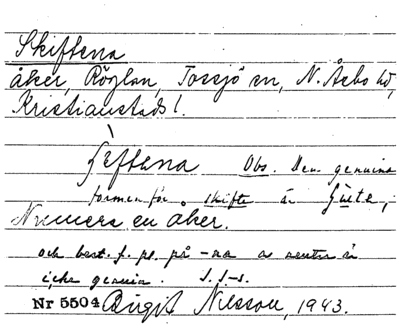 Skiftena
åker, Röglan, Tossjö sn, N. Åsbo hd,
Kristianstads l.
ʃèftena Obs. Den genuina
formen för skifte är
Numera en åker.
och best. f. pl. på -na a neutr. är
icke genuin. S. I-s.
Nr 5504 Birgit Nilsson, 1943.